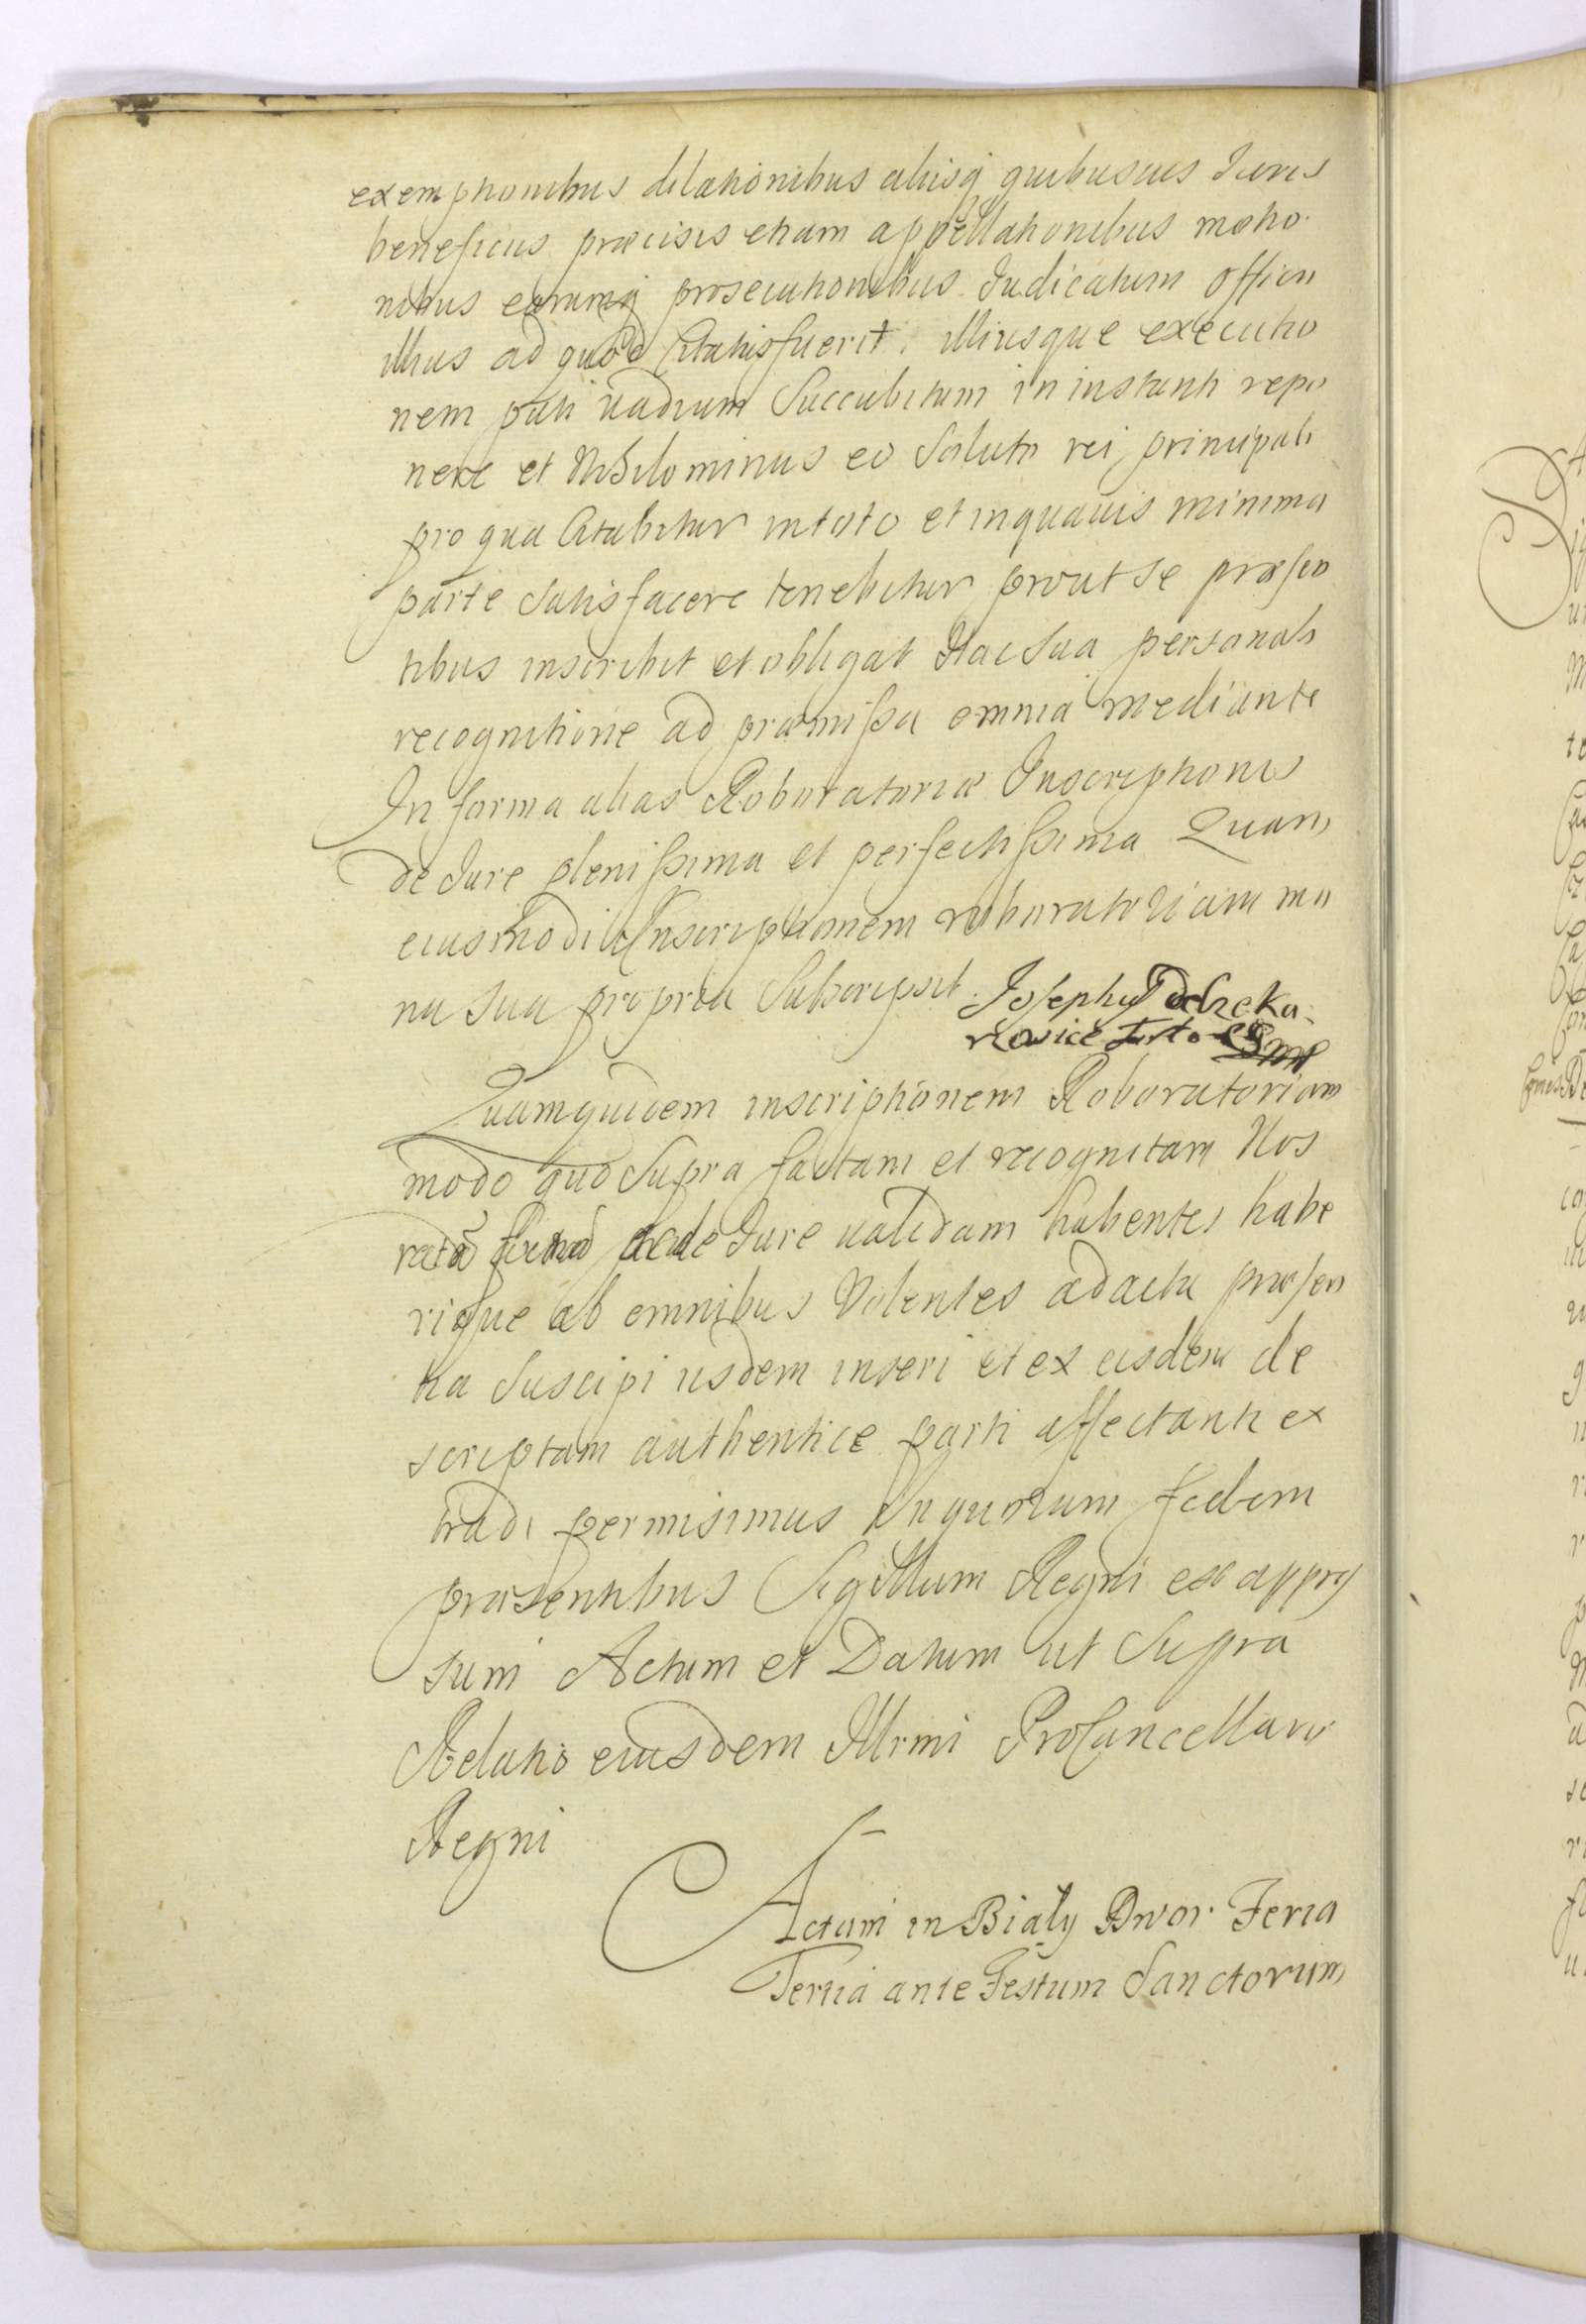 exemptionibus dilationibus aliisq quibusuis Juris
beneficiis præcisis etiam appellationibus motio
nibus earumq prosecutionibus Judicatum officii
illius ad quod Citatus fuerit. illiusque executio
nem pati vadium Succubitum in instanti repo
nere et Nihilominus eo soluto rei principali
pro qua Citabitur intoto et inquavis minima
parte satisfacere tenebitur prout se præsen
tibus inscribit et obligat Hac sua personali
recognitione ad præmissa omnia mediante
In forma alias Roboratoriæ Inscriptionis
de Jure plenissima et perfectissima Quam
eiusmodi Inscriptionem roboratoriam ma
nu sua propria Subscripsit Josephus
Quamquidem inscriptionem Roboratoriam
modo quo supra factam et recognitam Nos
ratã de Jure validam habentes habe
rique ab omnibus Volentes ad acta præsen
tia suscipi iisdem inseri et ex eisdem de
scriptam authentice parti affectanti ex
tradi permisimus In quorum fidem
præsentibus Sigillum Regni est appres
sum Actum et Datum ut Supra
Relatio eiusdem Illrmi ProCancellarii
Regni
Actum in Biały Dwor Feria
Tertia ante Festum Sanctorum